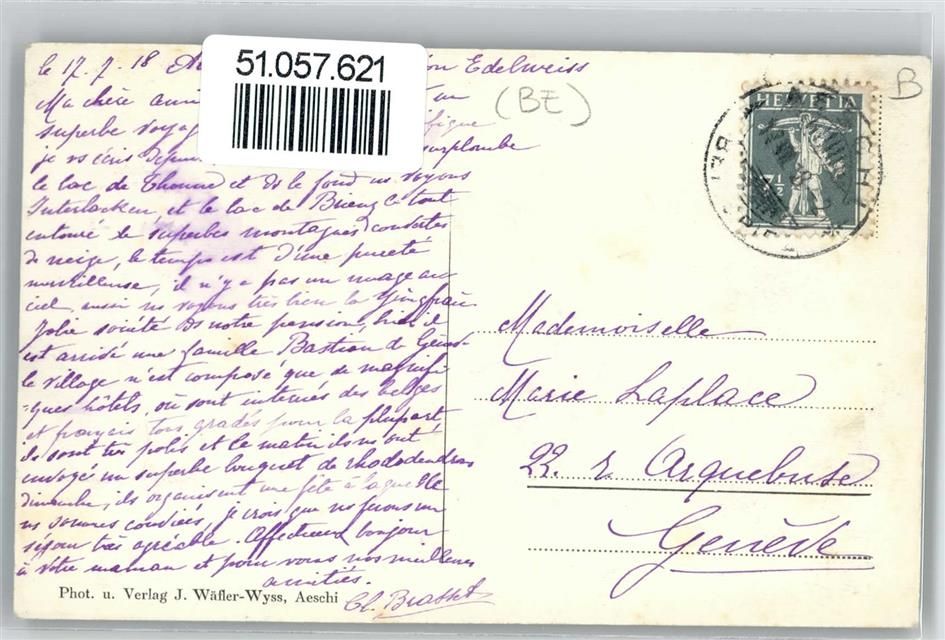 51.057.621
le 17-7-18 Edelweiss
(BE)
B
HELVETIA
7½
Ma chère amie un
superbe voyage
je vs écris depuis surplombe
le lac de Thoune et ds le fond ns voyons
Interlacken, et le lac de Brienz ce tout
entouré de superbes montagnes couvertes
de neige, le temps est d'une pureté
merveilleuse, il n'y a pas un nuage au
ciel, aussi ns voyons très bien la Yungfrau
Jolie société ds notre pension, hier il
est arrivé une famille Bastian de Genève
le village n'est composé que de magnifi-
-ques hôtels, où sont internés des belges
et français tous gradés pour la plupart,
ils sont très polis et le matin ils ns ont
envoyé un superbe bouquet de rhododendrons
dimanche, ils organisent une fête à laquelle
ns sommes conviées, je crois que ns ferons un
séjour très agréable. Affectueux bonjour
à votre maman et pour vous nos meilleures
amitiés.
Cl. Brasset
Mademoiselle
Marie Laplace
22. r. Arquebuse
Genève
Phot. u. Verlag J. Wäfler-Wyss, Aeschi